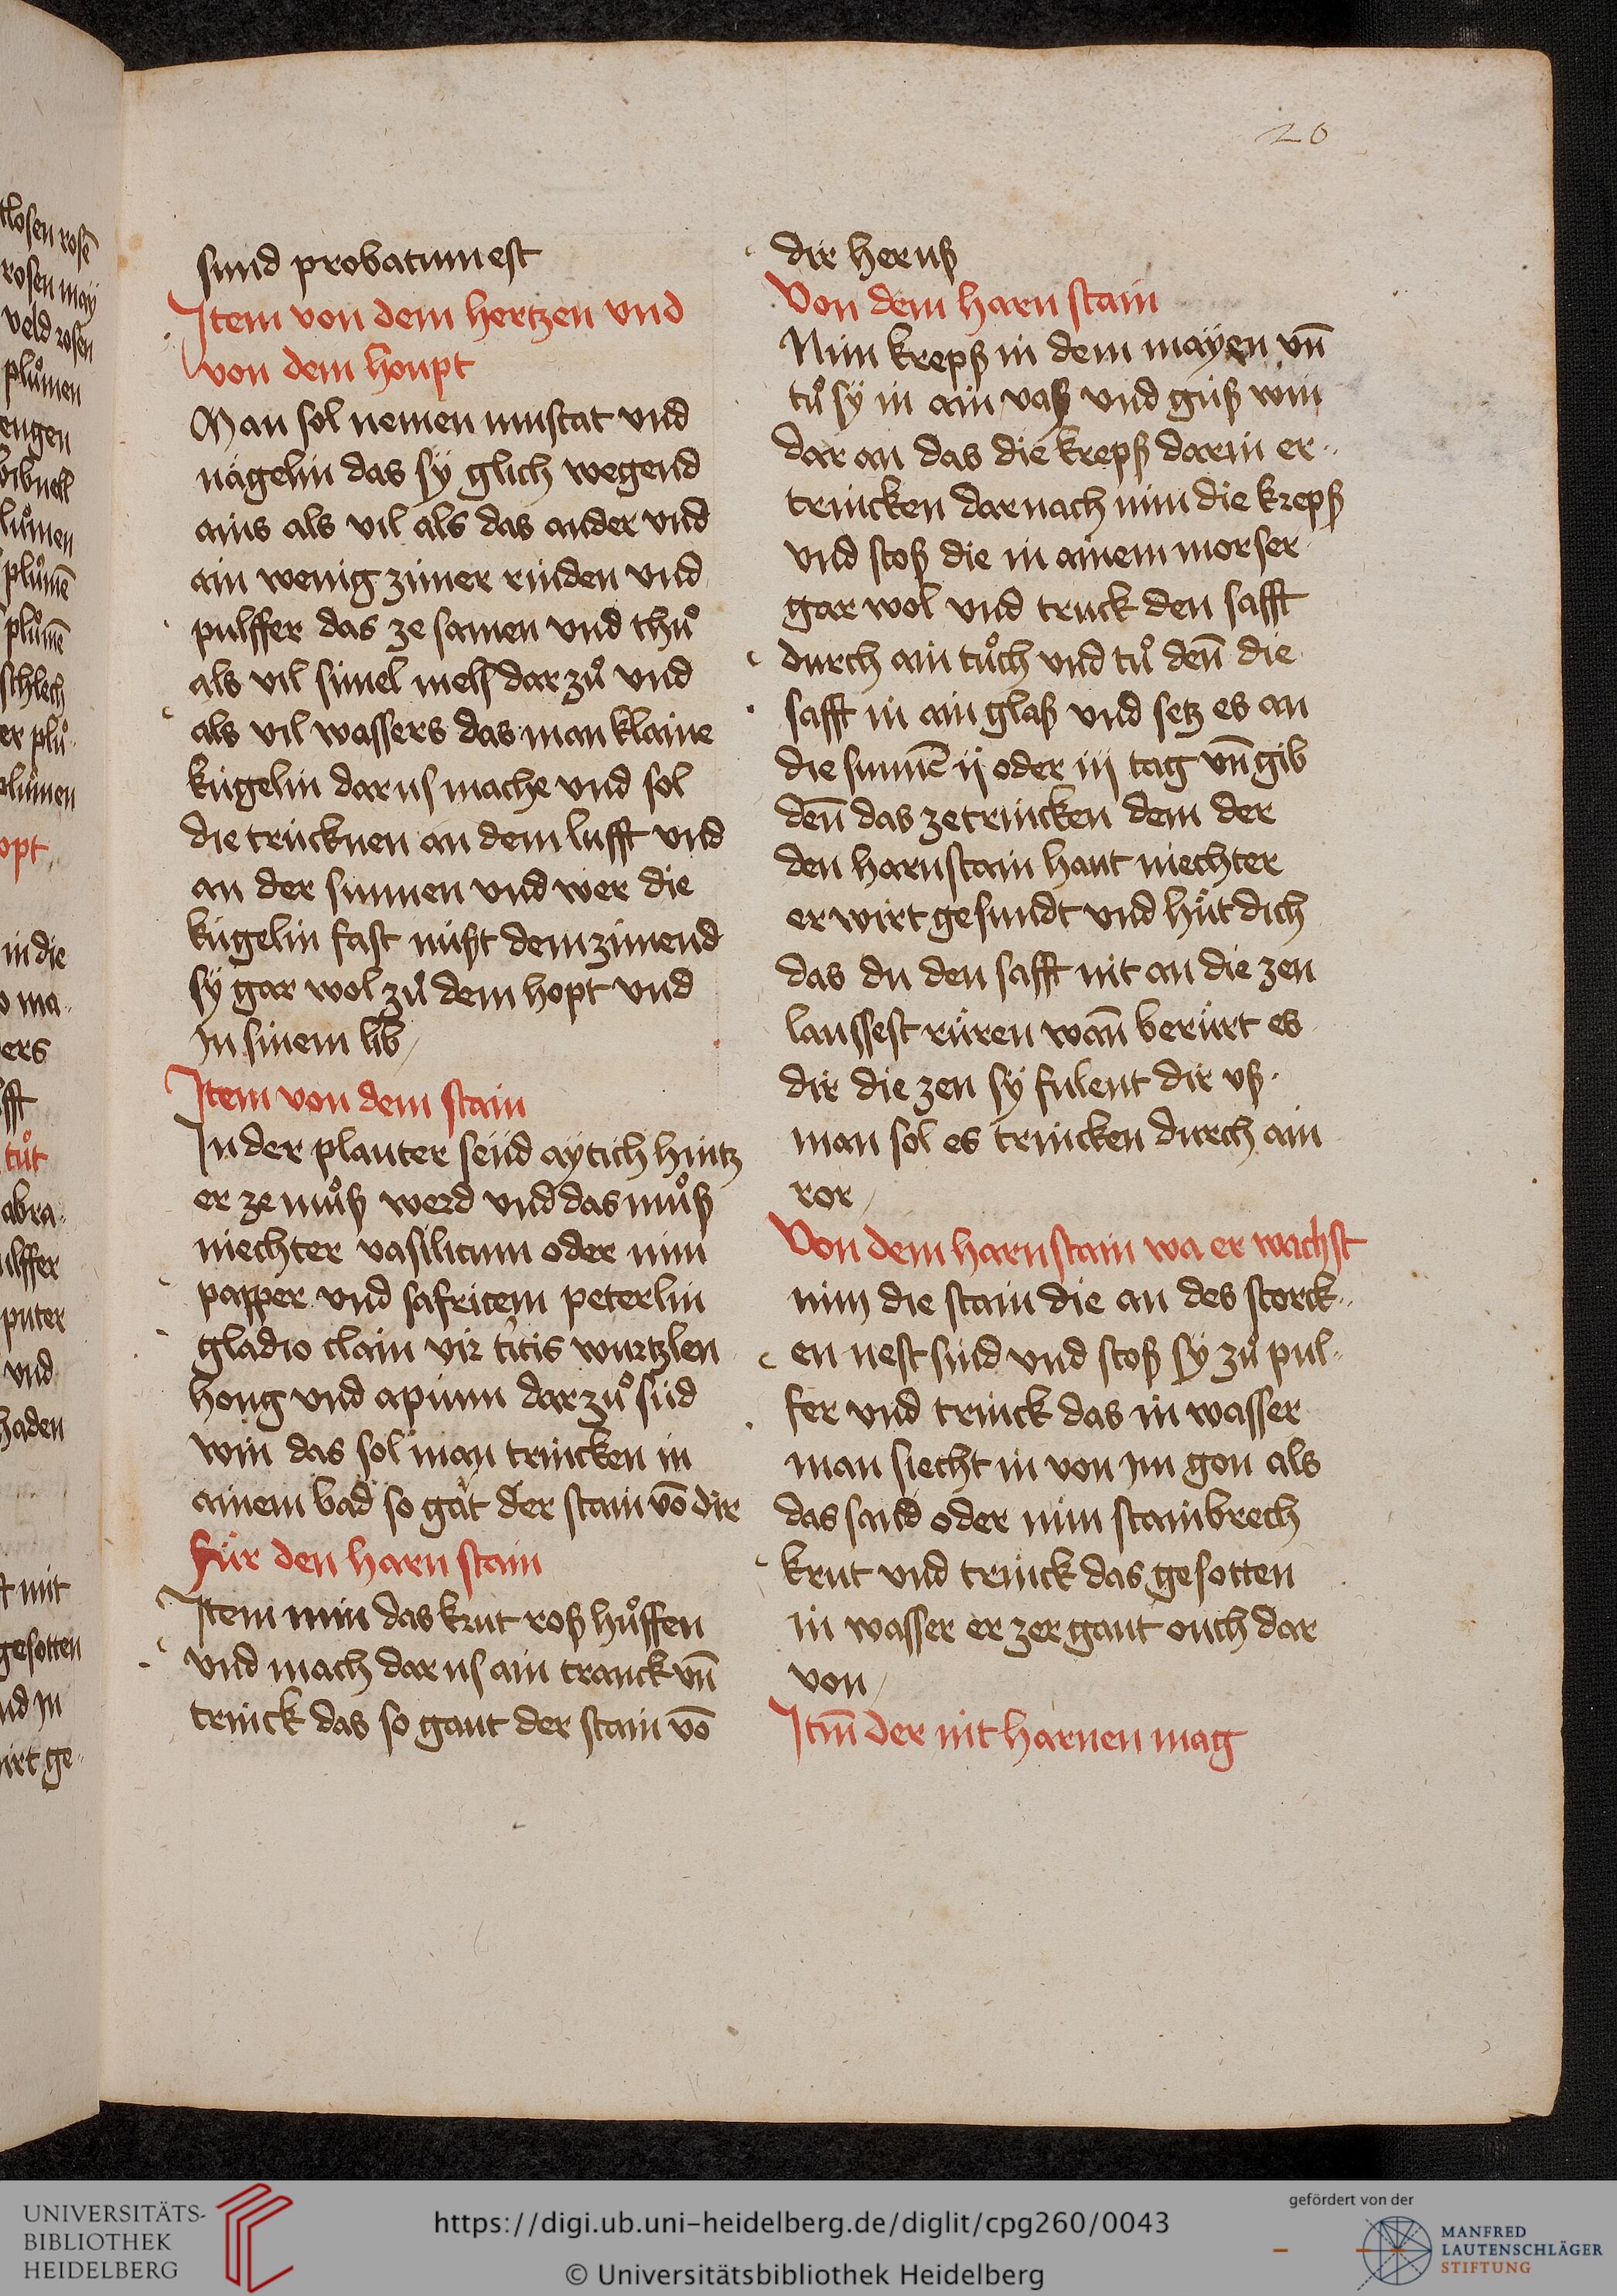 20
sund probatum est
Item von dem hertzen vnd
von dem houpt
Man sol nemen muscat vnd
nägelin das sÿ glich wegend
ains als vil als das ander vnd
ain wenig zimer rinden vnd
pulffer das ze samen vnd thuͦ
als vil simel mel dar zuͦ vnd
als vil wassers das man klaine
kügelin dar us mache vnd sol
die trücknen an dem lufft vnd
an der sunnen vnd wer die
kügelin fast nüßt dem zimend
sÿ gar wol zuͦ dem hopt vnd
jn sinem lib
Item von dem stain
In der plauter seüd aÿtich hintz
er ze muͦß werd vnd das muͦß
niechter vasilicum oder nim
papper vnd safricem peterlin
gladio clain vir titis wurtzlen
hong vnd apium dar zuͦ süd
win das sol man trincken in
ainem bad so gät der stain vō dir
Für den harn stain
Item nim das krut roß huͦffen
vnd mach dar us ain tranck vn̄
trinck das so gaut der stain vō
dir heruß
Von dem harn stain
Nim krepß in dem maÿen vn̄
tuͦ sÿ in ain vaß vnd güß win
dar an das die krepß darin er-
trincken darnach nim die krepß
vnd stoß die in ainem morser
gar wol vnd truck den safft
durch ain tuͦch vnd tuͦ den̄ die
safft in ain glaß vnd setz es an
die sunnē ij oder iij tag vn̄ gib
den̄ das ze trincken dem der
den harnstain haut niechter
er wirt gesundt vnd hüt dich
das du den safft nit an die zen
laussest rüren wan̄ berürt es
dir die zen sÿ fulent dir vß
man sol es trincken durch ain
ror
Von dem harnstain wa er wachst
nim die stain die an des storck-
en nest sind vnd stoß sÿ zuͦ pul-
fer vnd trinck das in wasser
man siecht in von jm gon als
das sand oder nim stainbrech
krut vnd trinck das gesotten
in wasser er zergaut ouch dar
von
Itm̄ der nit harnen mag
tlosen rosē
rosen maÿ
veld rosen
pluͦmen
engen
bibnell
luͦmen
pluͦmē
pluͦmē
schlech
er pluͦ-
pluͦmen
opt
in die
o ma-
ers
fft
tuͦt
abra-
ulffer
puter
vnd
haden
t mit
gesotten
nd jn
irt ge-
UNIVERSITÄTS-
BIBLIOTHEK
HEIDELBERG
https://digi.ub.uni-heidelberg.de/diglit/cpg260/0043
© Universitätsbibliothek Heidelberg
gefördert von der
MANFRED
LAUTENSCHLÄGER
STIFTUNG